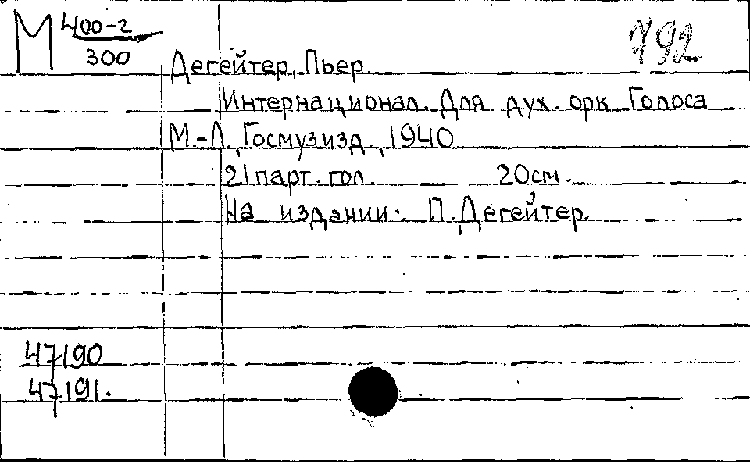 М 400-2
300
792
Дегейтер, Пьер
Интернационал. Для дух. орк Голоса
М-Л, Госмузизд, 1940
21 парт. гол. 20см.
На издании: П. Дегейтер
47190
47191.